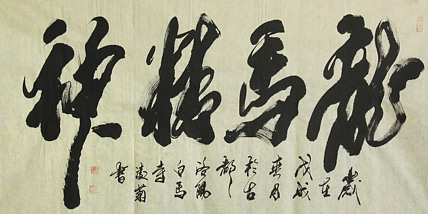 龍馬精神
歲
在
戊戌
春月
於古
都
洛陽
白馬
寺
凌菊
書